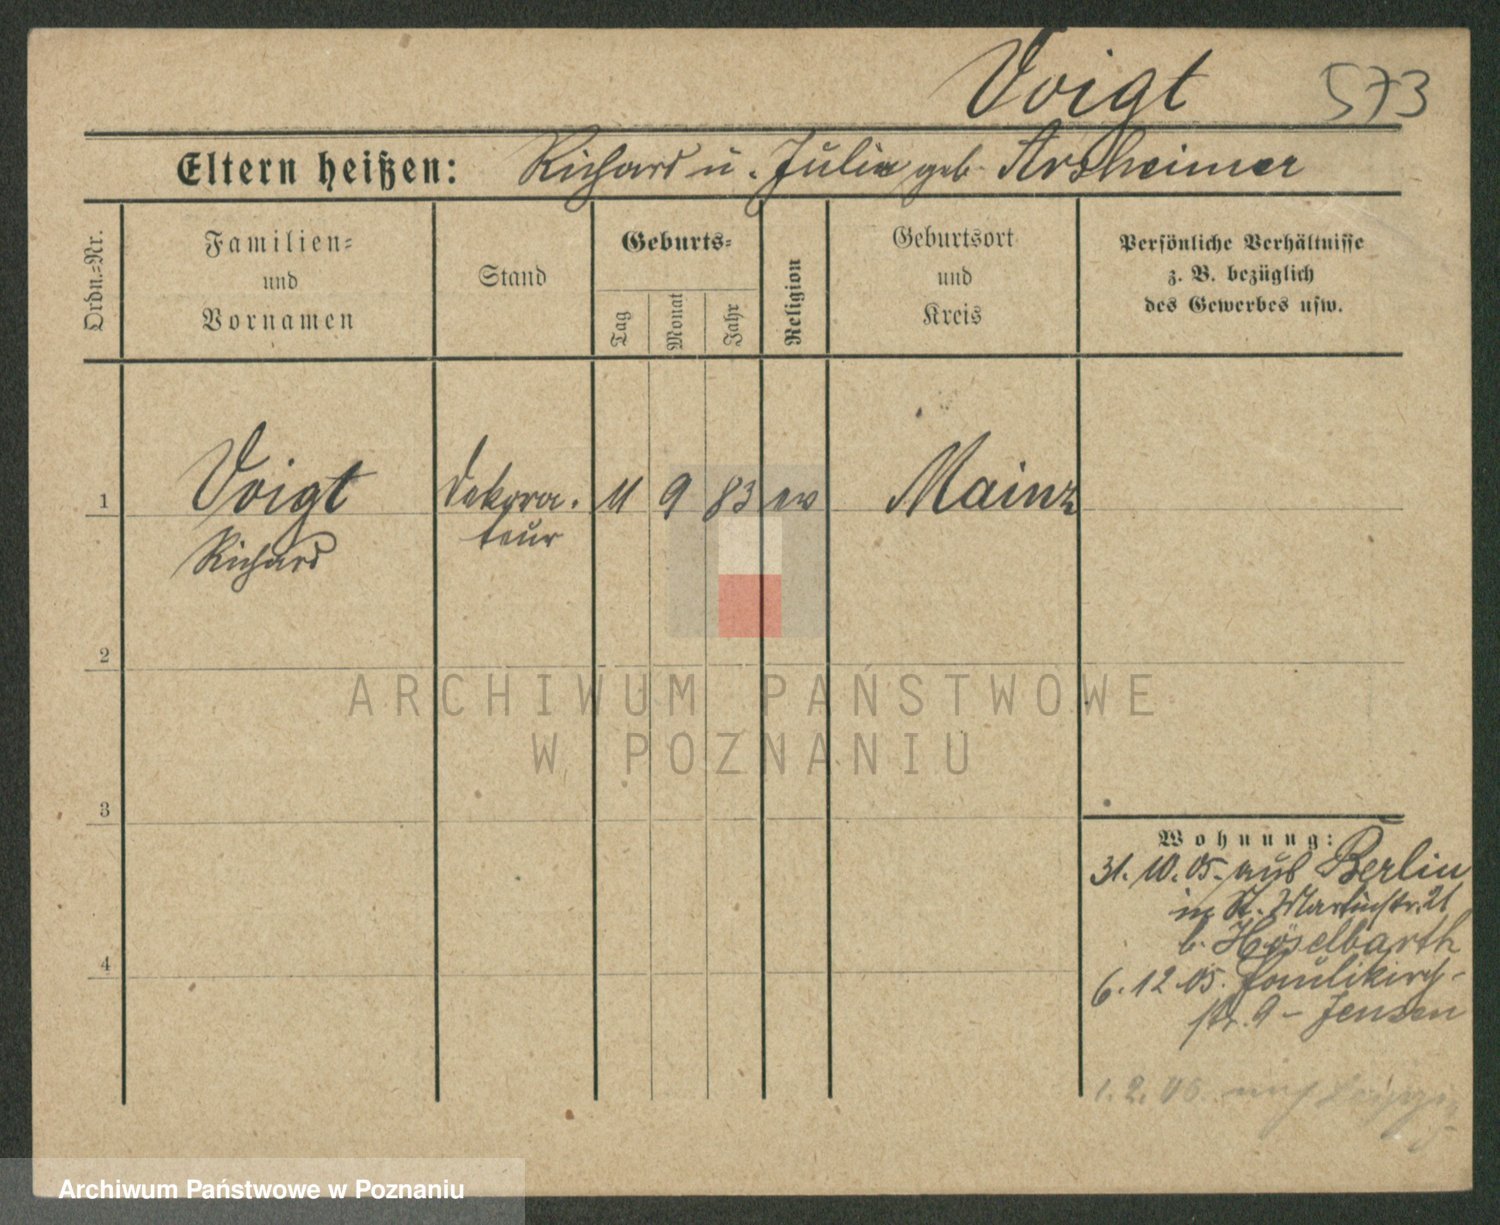 Voigt 573
Eltern heißen: Richard u. Julie geb. Arsheimer
Ordn.=Nr.
Familien=
und
Vornamen
Stand
Geburts=
Tag
Monat
Jahr
Religion
Geburtsort
und
Kreis
Persönliche Verhältnisse
z. B. bezüglich
des Gewerbes usw.
1 Voigt Dekora- 11 9 83 ev Mainz
Richard teur
2
3
4
Wohnung:
31. 10. 05. aus Berlin
in St. Martinstr. 21
b. Höselbarth
6. 12 05. Paulikirch-
str. 9 - Jensen
1. 2. 06. nach Leipzig
ARCHIWUM PAŃSTWOWE
W POZNANIU
Archiwum Państwowe w Poznaniu